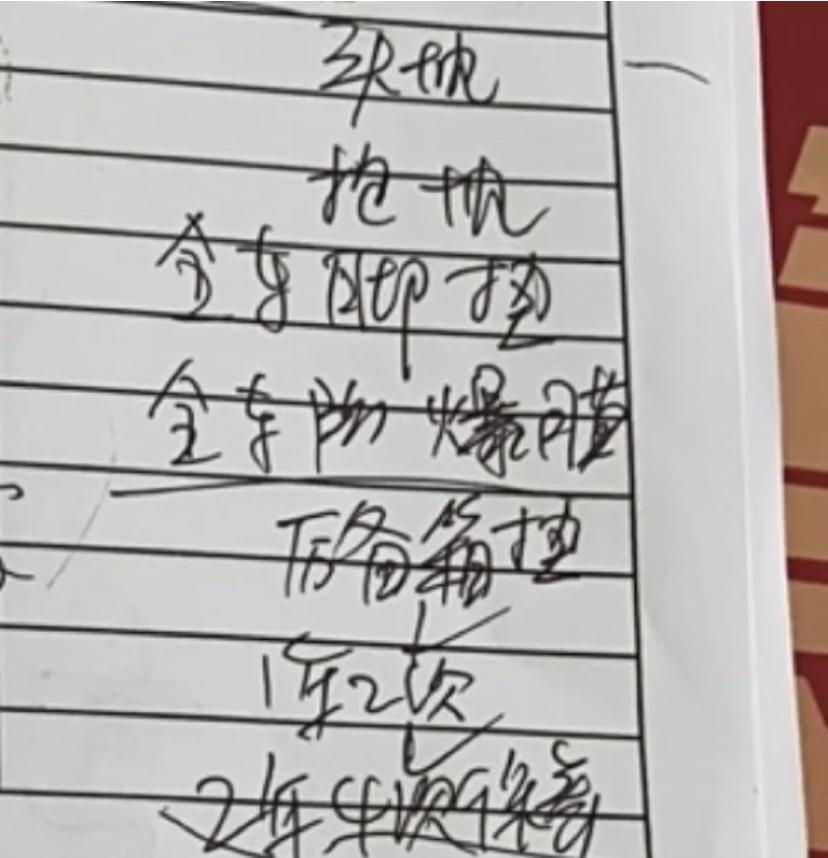 头枕
抱枕
全车脚垫
全车防爆膜
后备箱垫
1年2次
2年4次保养